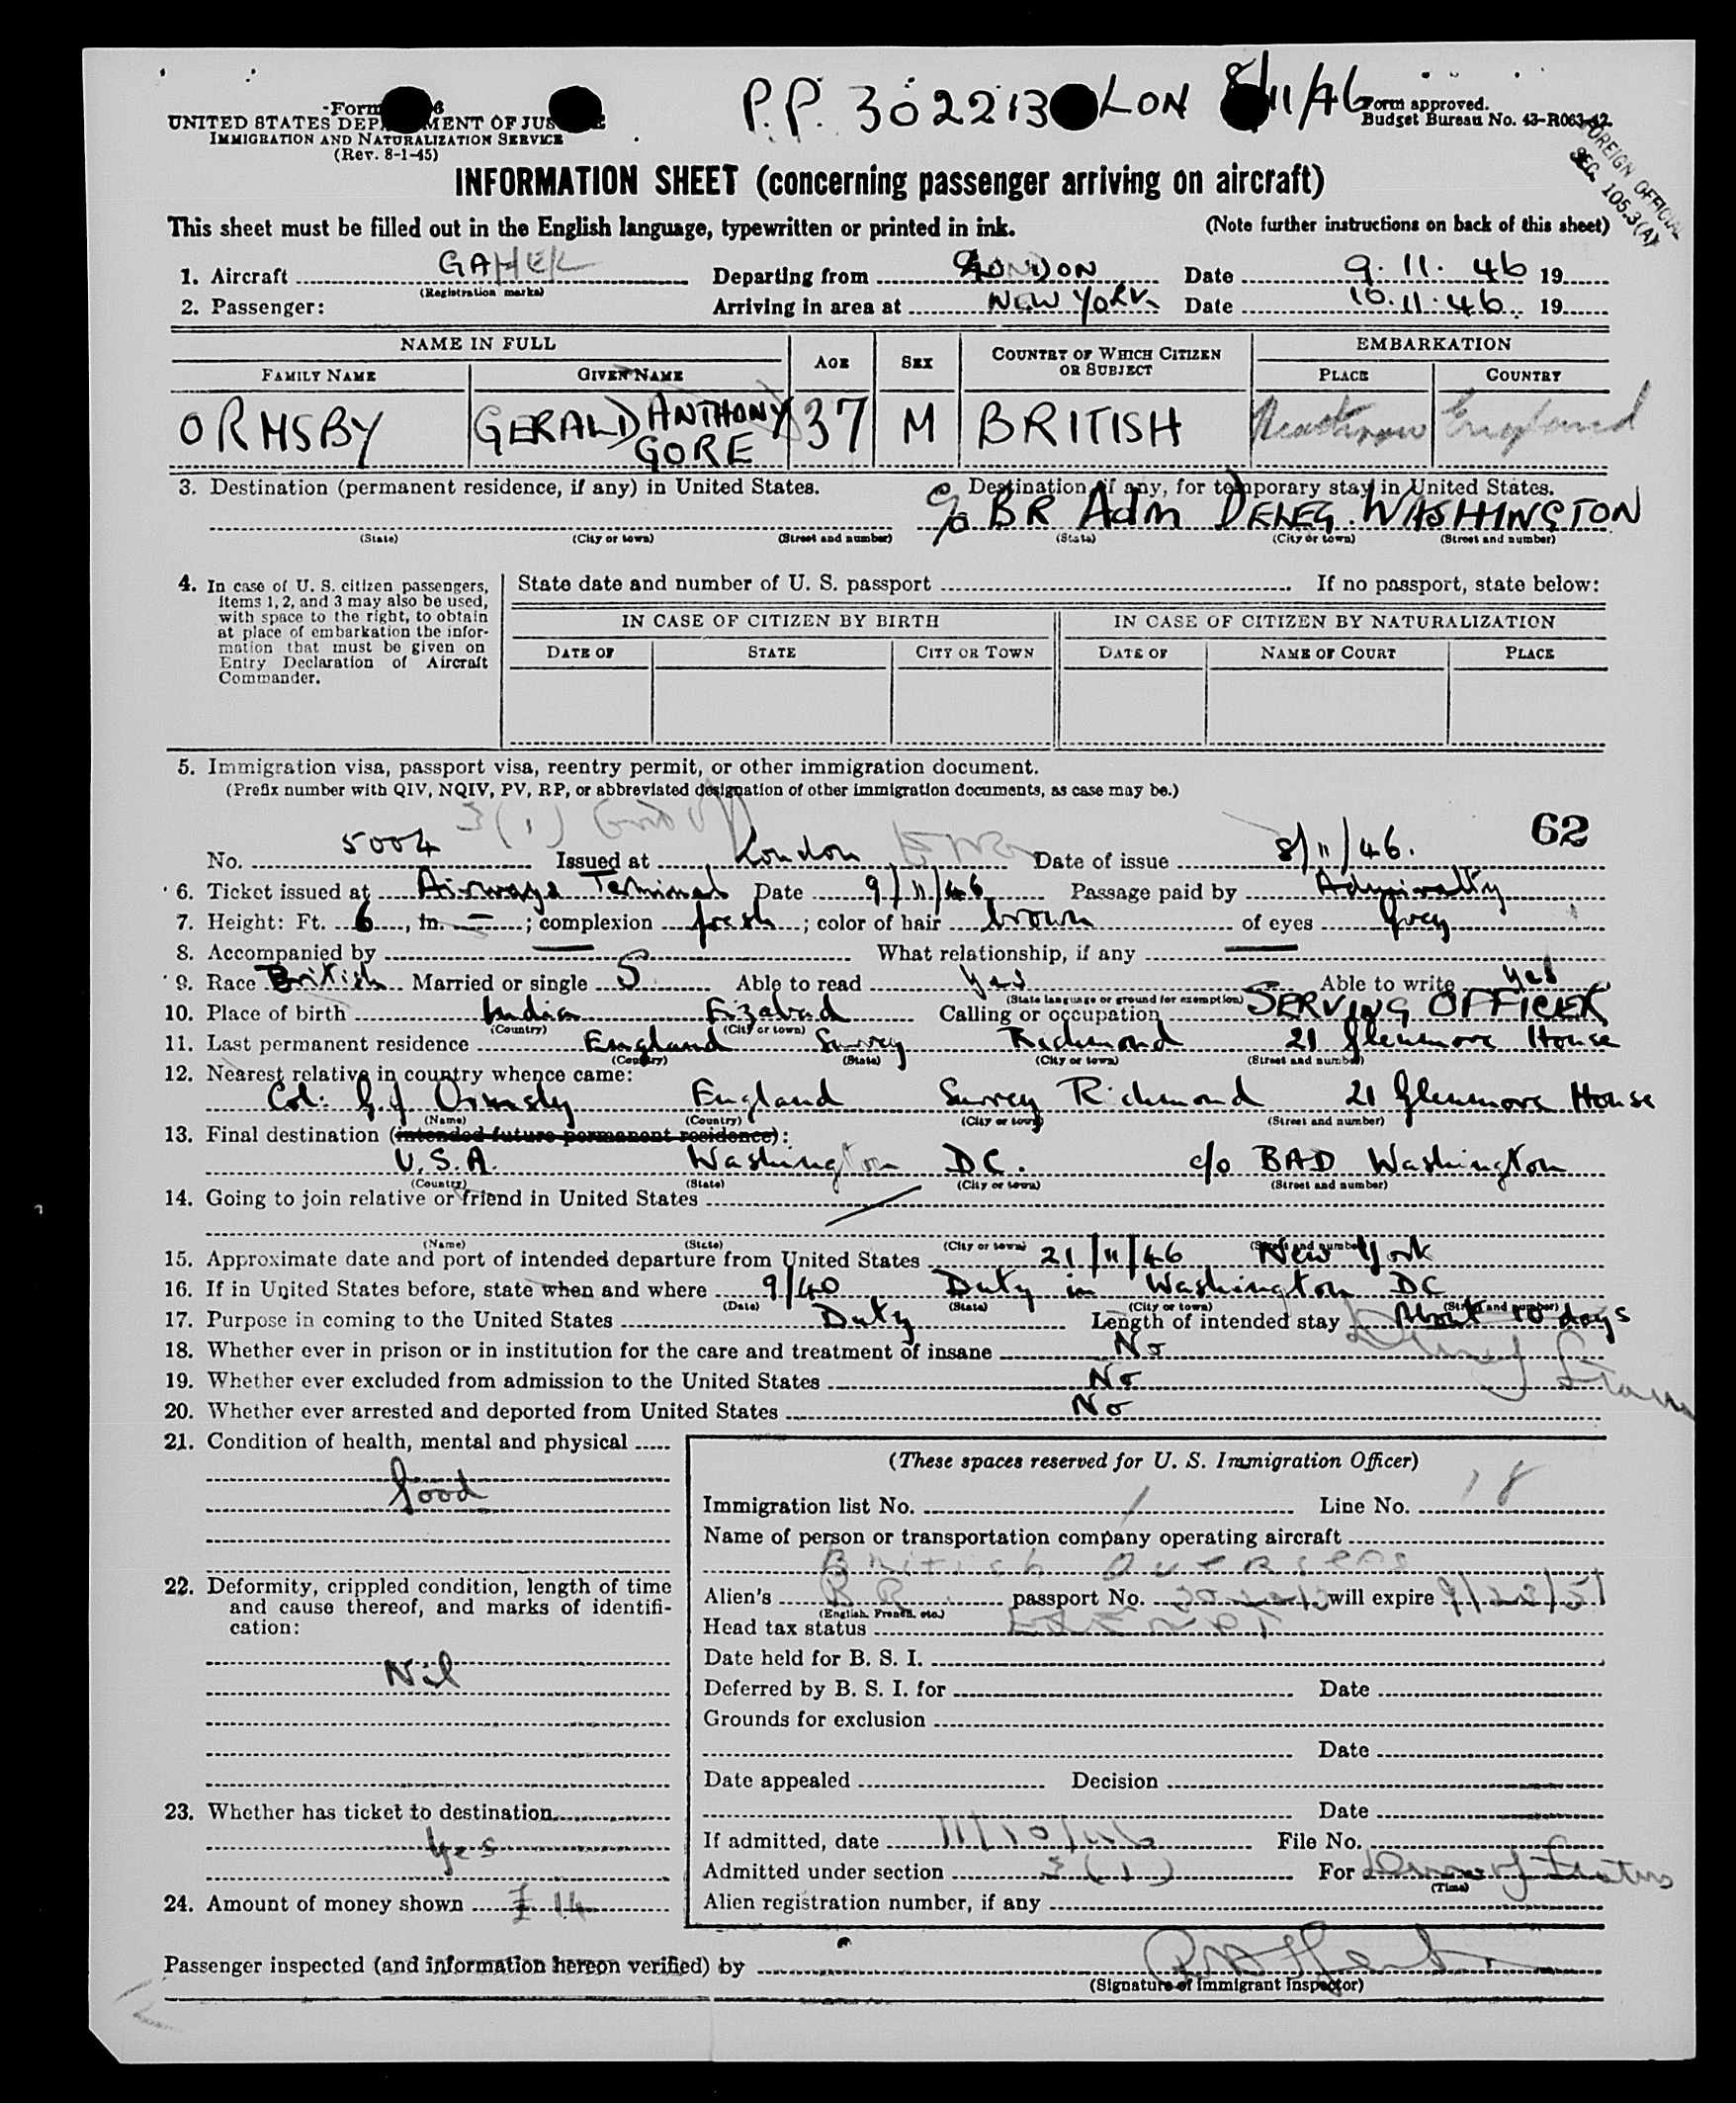 P.P. 302213 LON 8/11/46
Form approved.
Budget Bureau No. 43-R063-42.
UNITED STATES DEP MENT OF JUS
IMMIGRATION AND NATURALIZATION SERVICE
(Rev. 8-1-45)
FOREIGN OFFICIAL
SEC. 105.3(A)
INFORMATION SHEET (concerning passenger arriving on aircraft)
This sheet must be filled out in the English language, typewritten or printed in ink. (Note further instructions on back of this sheet)
1. Aircraft GAHEL Departing from LONDON Date 9.11.46 19
(Registration marks)
2. Passenger: Arriving in area at NEW YORK Date 10.11.46. 19
NAME IN FULL AGE SEX COUNTRY OF WHICH CITIZEN OR SUBJECT EMBARKATION
FAMILY NAME GIVEN NAME PLACE COUNTRY
ORMSBY GERALD ANTHONY GORE 37 M BRITISH Heathrow England
3. Destination (permanent residence, if any) in United States. Destination, if any, for temporary stay in United States.
c/o BR Adm DELEG. WASHINGTON
(State) (City or town) (Street and number) (State) (City or town) (Street and number)
4. In case of U. S. citizen passengers, items 1, 2, and 3 may also be used, with space to the right, to obtain at place of embarkation the information that must be given on Entry Declaration of Aircraft Commander.
State date and number of U. S. passport If no passport, state below:
IN CASE OF CITIZEN BY BIRTH IN CASE OF CITIZEN BY NATURALIZATION
DATE OF STATE CITY OR TOWN DATE OF NAME OF COURT PLACE
5. Immigration visa, passport visa, reentry permit, or other immigration document.
(Prefix number with QIV, NQIV, PV, RP, or abbreviated designation of other immigration documents, as case may be.)
3(1) Gov't Off
62
No. 5004 Issued at London Date of issue 8/11/46.
6. Ticket issued at Airways Terminal Date 9/11/46 Passage paid by Admiralty
7. Height: Ft. 6, in. –; complexion fresh; color of hair brown of eyes Grey
8. Accompanied by — What relationship, if any —
9. Race British Married or single S Able to read yes Able to write yes
(State language or ground for exemption)
10. Place of birth India Fizabad Calling or occupation SERVING OFFICER
(Country) (City or town)
11. Last permanent residence England Surrey Richmond 21 Glenmore House
(Country) (State) (City or town) (Street and number)
12. Nearest relative in country whence came:
Col: G.J Ormsby England Surrey Richmond 21 Glenmore House
(Name) (Country) (City or town) (Street and number)
13. Final destination (intended future permanent residence):
U.S.A. Washington DC. c/o BAD Washington
(Country) (State) (City or town) (Street and number)
14. Going to join relative or friend in United States
(Name) (State) (City or town) (Street and number)
15. Approximate date and port of intended departure from United States 21/11/46 New York
16. If in United States before, state when and where 9/40 Duty in Washington DC
(Date) (State) (City or town) (Street and number)
17. Purpose in coming to the United States Duty Length of intended stay About 10 days
18. Whether ever in prison or in institution for the care and treatment of insane No
19. Whether ever excluded from admission to the United States No
20. Whether ever arrested and deported from United States No
21. Condition of health, mental and physical
Good
22. Deformity, crippled condition, length of time and cause thereof, and marks of identification:
Nil
23. Whether has ticket to destination
Yes
24. Amount of money shown £ 14
(These spaces reserved for U. S. Immigration Officer)
Immigration list No. 1 Line No. 18
Name of person or transportation company operating aircraft
British Overseas
Alien's BR. passport No. 302213 will expire 9/28/51
(English, French, etc.)
Head tax status EXEMPT
Date held for B. S. I.
Deferred by B. S. I. for Date
Grounds for exclusion
Date
Date appealed Decision
Date
If admitted, date 11/10/46 File No.
Admitted under section 3(1) For Dur of Status
(Time)
Alien registration number, if any
Passenger inspected (and information hereon verified) by
(Signature of Immigrant Inspector)